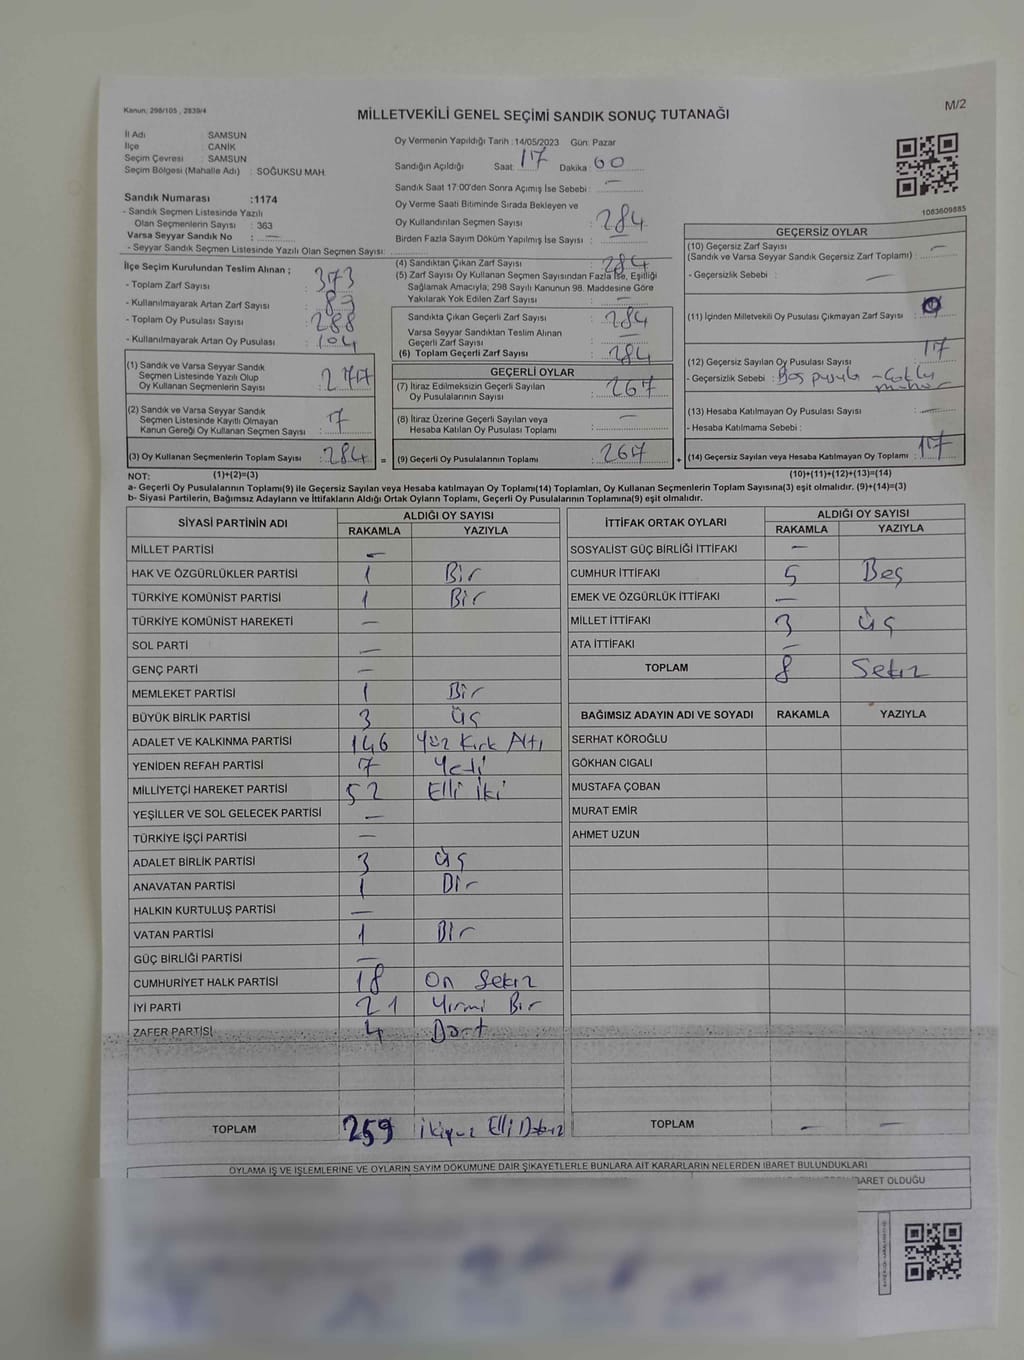 Kanun: 298/105 , 2839/4
MİLLETVEKİLİ GENEL SEÇİMİ SANDIK SONUÇ TUTANAĞI
M/2
İl Adı : SAMSUN
İlçe : CANİK
Seçim Çevresi : SAMSUN
Seçim Bölgesi (Mahalle Adı) : SOĞUKSU MAH.
Sandık Numarası :1174
- Sandık Seçmen Listesinde Yazılı
Olan Seçmenlerin Sayısı : 363
Varsa Seyyar Sandık No : —
- Seyyar Sandık Seçmen Listesinde Yazılı Olan Seçmen Sayısı:
Oy Vermenin Yapıldığı Tarih :14/05/2023 Gün: Pazar
Sandığın Açıldığı Saat: 17 Dakika: 00
Sandık Saat 17:00'den Sonra Açımış İse Sebebi : —
Oy Verme Saati Bitiminde Sırada Bekleyen ve
Oy Kullandırılan Seçmen Sayısı : 284
Birden Fazla Sayım Döküm Yapılmış İse Sayısı : —
1083609885
İlçe Seçim Kurulundan Teslim Alınan ;
- Toplam Zarf Sayısı : 373
- Kullanılmayarak Artan Zarf Sayısı : 89
- Toplam Oy Pusulası Sayısı : 288
- Kullanılmayarak Artan Oy Pusulası : 104
(1) Sandık ve Varsa Seyyar Sandık
Seçmen Listesinde Yazılı Olup
Oy Kullanan Seçmenlerin Sayısı
(2) Sandık ve Varsa Seyyar Sandık
Seçmen Listesinde Kayıtlı Olmayan
Kanun Gereği Oy Kullanan Seçmen Sayısı : 17
(3) Oy Kullanan Seçmenlerin Toplam Sayısı : 284 =
(4) Sandıktan Çıkan Zarf Sayısı : 284
(5) Zarf Sayısı Oy Kullanan Seçmen Sayısından Fazla İse, Eşitliği
Sağlamak Amacıyla; 298 Sayılı Kanunun 98. Maddesine Göre
Yakılarak Yok Edilen Zarf Sayısı : —
Sandıkta Çıkan Geçerli Zarf Sayısı : 284
Varsa Seyyar Sandıktan Teslim Alınan
Geçerli Zarf Sayısı : —
(6) Toplam Geçerli Zarf Sayısı : 284
GEÇERLİ OYLAR
(7) İtiraz Edilmeksizin Geçerli Sayılan
Oy Pusulalarının Sayısı : 267
(8) İtiraz Üzerine Geçerli Sayılan veya
Hesaba Katılan Oy Pusulası Toplamı : —
(9) Geçerli Oy Pusulalarının Toplamı : 267 +
GEÇERSİZ OYLAR
(10) Geçersiz Zarf Sayısı
(Sandık ve Varsa Seyyar Sandık Geçersiz Zarf Toplamı) : —
- Geçersizlik Sebebi : —
(11) İçinden Milletvekili Oy Pusulası Çıkmayan Zarf Sayısı :
(12) Geçersiz Sayılan Oy Pusulası Sayısı : 17
- Geçersizlik Sebebi : Boş pusula - Çoklu
mühür
(13) Hesaba Katılmayan Oy Pusulası Sayısı : —
- Hesaba Katılmama Sebebi :
(14) Geçersiz Sayılan veya Hesaba Katılmayan Oy Toplamı : 17
NOT: (1)+(2)=(3)
(10)+(11)+(12)+(13)=(14)
a- Geçerli Oy Pusulalarının Toplamı(9) ile Geçersiz Sayılan veya Hesaba katılmayan Oy Toplamı(14) Toplamları, Oy Kullanan Seçmenlerin Toplam Sayısına(3) eşit olmalıdır. (9)+(14)=(3)
b- Siyasi Partilerin, Bağımsız Adayların ve İttifakların Aldığı Ortak Oyların Toplamı, Geçerli Oy Pusulalarının Toplamına(9) eşit olmalıdır.
SİYASİ PARTİNİN ADI ALDIĞI OY SAYISI
RAKAMLA YAZIYLA
MİLLET PARTİSİ —
HAK VE ÖZGÜRLÜKLER PARTİSİ 1 Bir
TÜRKİYE KOMÜNİST PARTİSİ 1 Bir
TÜRKİYE KOMÜNİST HAREKETİ —
SOL PARTİ —
GENÇ PARTİ —
MEMLEKET PARTİSİ 1 Bir
BÜYÜK BİRLİK PARTİSİ 3 Üç
ADALET VE KALKINMA PARTİSİ 146 Yüz Kırk Altı
YENİDEN REFAH PARTİSİ 7 Yedi
MİLLİYETÇİ HAREKET PARTİSİ 52 Elli İki
YEŞİLLER VE SOL GELECEK PARTİSİ —
TÜRKİYE İŞÇİ PARTİSİ —
ADALET BİRLİK PARTİSİ 3 Üç
ANAVATAN PARTİSİ 1 Bir
HALKIN KURTULUŞ PARTİSİ —
VATAN PARTİSİ 1 Bir
GÜÇ BİRLİĞİ PARTİSİ —
CUMHURİYET HALK PARTİSİ 18 On Sekiz
İYİ PARTİ 21 Yirmi Bir
ZAFER PARTİSİ 4 Dört
TOPLAM 259 İkiyüz Elli Dokuz
İTTİFAK ORTAK OYLARI ALDIĞI OY SAYISI
RAKAMLA YAZIYLA
SOSYALİST GÜÇ BİRLİĞİ İTTİFAKI —
CUMHUR İTTİFAKI 5 Beş
EMEK VE ÖZGÜRLÜK İTTİFAKI —
MİLLET İTTİFAKI 3 Üç
ATA İTTİFAKI —
TOPLAM 8 Sekiz
BAĞIMSIZ ADAYIN ADI VE SOYADI RAKAMLA YAZIYLA
SERHAT KÖROĞLU
GÖKHAN CIGALI
MUSTAFA ÇOBAN
MURAT EMİR
AHMET UZUN
TOPLAM — —
OYLAMA İŞ VE İŞLEMLERİNE VE OYLARIN SAYIM DÖKÜMÜNE DAİR ŞİKAYETLERLE BUNLARA AİT KARARLARIN NELERDEN İBARET BULUNDUKLARI
İBARET OLDUĞU